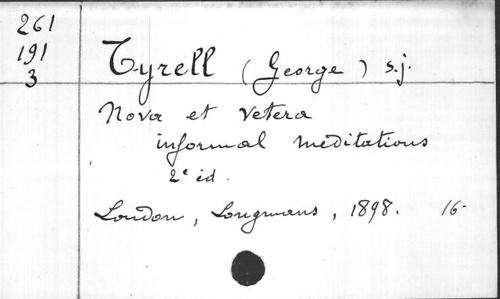 261
191
3
Tyrell (George) s.j.
Nova et vetera
informal meditations
2e éd.
London, Longmans, 1898. 16-